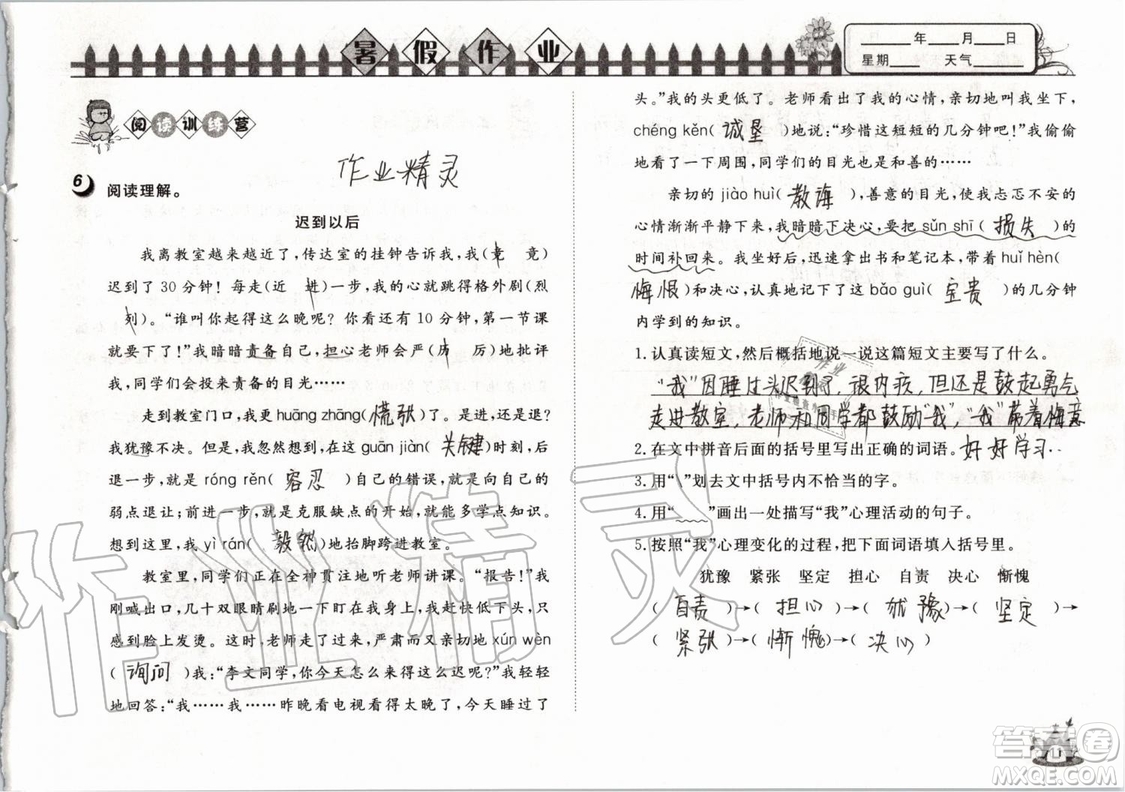 暑假作业
____年____月____日
星期____ 天气____
阅读训练营
作业精灵
6 阅读理解。
迟到以后
我离教室越来越近了，传达室的挂钟告诉我，我(竟 竞)
迟到了 30 分钟！每走(近 进)一步，我的心就跳得格外剧(烈
列)。“谁叫你起得这么晚呢？你看还有 10 分钟，第一节课
就要下了！”我暗暗责备自己，担心老师会严(历 厉)地批评
我，同学们会投来责备的目光……
走到教室门口，我更 huāng zhāng(慌张)了。是进，还是退？
我犹豫不决。但是，在这 guān jiàn(关键)时刻，后
退就是 róng rěn(容忍)自己的错误，就是向自己的
弱点退让；前进，就是克服缺点的开始，就能多学点知识。
想到这里，我 yì rán(毅然)地抬脚跨进教室。
教室里，同学们正在全神贯注地听老师讲课。“报告！”我
刚喊出口，几十双眼睛刷地一下盯在我身上。一时间，我
感到脸上发烫。这时，老师走了过来，严肃而亲切地 xún wèn
(询问)我：“李文同学，你今天怎么来迟了呢？”我轻轻
地回答：“我……我……昨晚看电视看得太晚了，今天睡过了
头。”我的头更低了。老师看出了我的心情，亲切地叫我坐下，
chéng kěn(诚垦)地说：“珍惜这短短的几分钟吧！”我偷偷
地看了一下周围，同学们的目光也充满着鼓励。
亲切的 jiào huì(教诲)，善意的目光，使我忐忑不安的
心情渐渐平静下来，我暗暗下决心，要把 sǔn shī(损失)的
时间补回来。我坐好后，迅速拿出书和笔记本，带着 huǐ hèn
(悔恨)和决心，认真地记下了这 bǎo guì(宝贵)的几分钟
内学到的知识。
1. 认真读短文，然后概括地说一说这篇短文主要写了什么。
“我”因睡过头迟到了，很内疚，但还是鼓起勇气
走进教室，老师和同学都鼓励“我”，“我”带着悔意
2. 在文中拼音后面的括号里写出正确的词语。 好好学习.
3. 用“\”划去文中括号内不恰当的字。
4. 用“﹏﹏”画出一处描写“我”心理活动的句子。
5. 按照“我”心理变化的过程，把下面词语填入括号里。
犹豫 紧张 坚定 担心 自责 决心 惭愧
(自责)→(担心)→(犹豫)→(坚定)→
(紧张)→(惭愧)→(决心)
作业精灵
答案圈
MXQE.COM